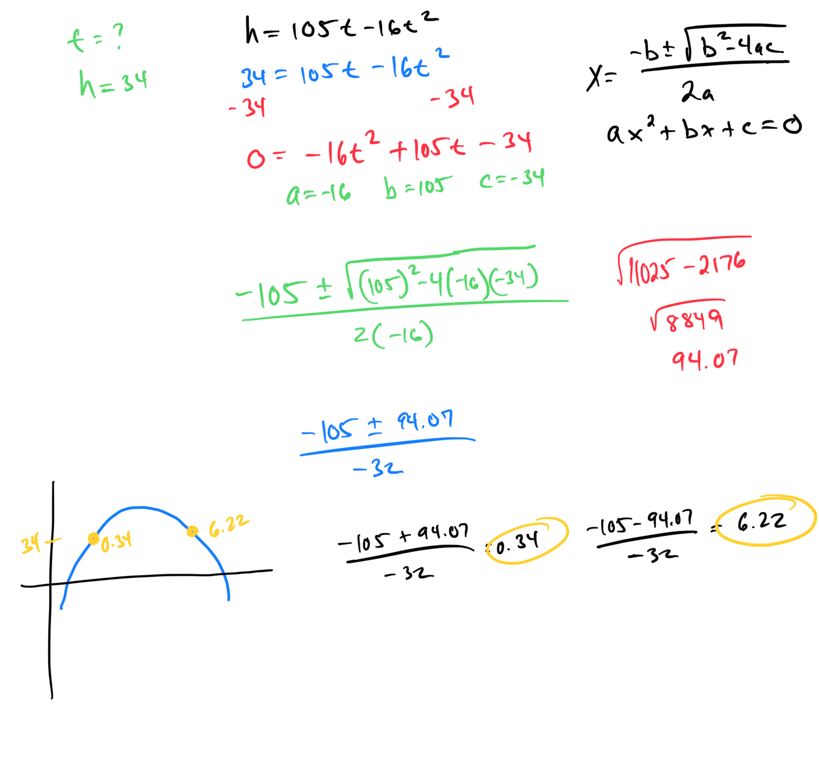 t = ?
h = 34
h = 105t - 16t²
34 = 105t - 16t²
-34 -34
0 = -16t² + 105t - 34
a = -16 b = 105 c = -34
x = \frac{-b ± √(b² - 4ac)}{2a}
ax² + bx + c = 0
\frac{-105 ± √((105)² - 4(-16)(-34))}{2(-16)}
√(11025 - 2176)
√8849
94.07
\frac{-105 ± 94.07}{-32}
\frac{-105 + 94.07}{-32} = 0.34
\frac{-105 - 94.07}{-32} = 6.22
34
0.34
6.22